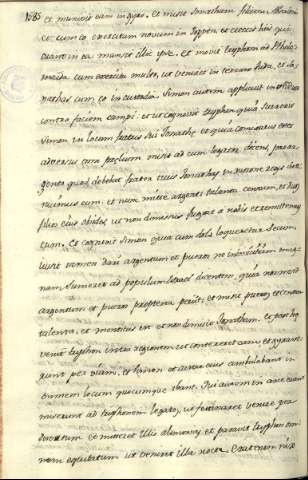 et munivit eam in gyro. et misit Jonathan filium Absalomi
et cum eo exercitum novum in Joppen et eiectis his qui
erant in ea mansit illic ipse. et movit tryphon ab Ptole
maida cum exercitu multo, ut veniret in terram Juda, et Jo
nathas cum eo in custodia. Simon autem applicuit in addus
contra faciem campi. et ut cognovit tryphon quia surrexit
Simon in locum fratris sui Jonathæ, et quia commissurus esset
adversus eum prælium misit ad eum legatos dicens, pro ar
gento quod debebat frater tuus Jonathas in ratione regis deti
nuimus eum. et nunc mitte argenti talenta centum, et duos
filios eius obsides, ut non dimissus fugiat a nobis et remittemus
eum. et cognovit Simon quia cum dolo loqueretur secum
iussit tamen dari argentum et pueros ne inimicitiam mag
nam sumeret ad populum Israel dicentem, quia non misit
argentum et pueros propterea periit. et misit pueros et centum
talenta. et mentitus est et non dimisit Jonathan. et post hæc
venit tryphon intra regionem ut contereret eam, et gyrave
runt per viam. et Simon et castra eius ambulabant in
omnem locum quocumque ibant. Qui autem in arce erant
miserunt ad tryphonem legatos, ut festinaret venire per
desertum et mitteret illis alimonias. et paravit tryphon om
nem equitatum ut veniret illa nocte. erat autem nix